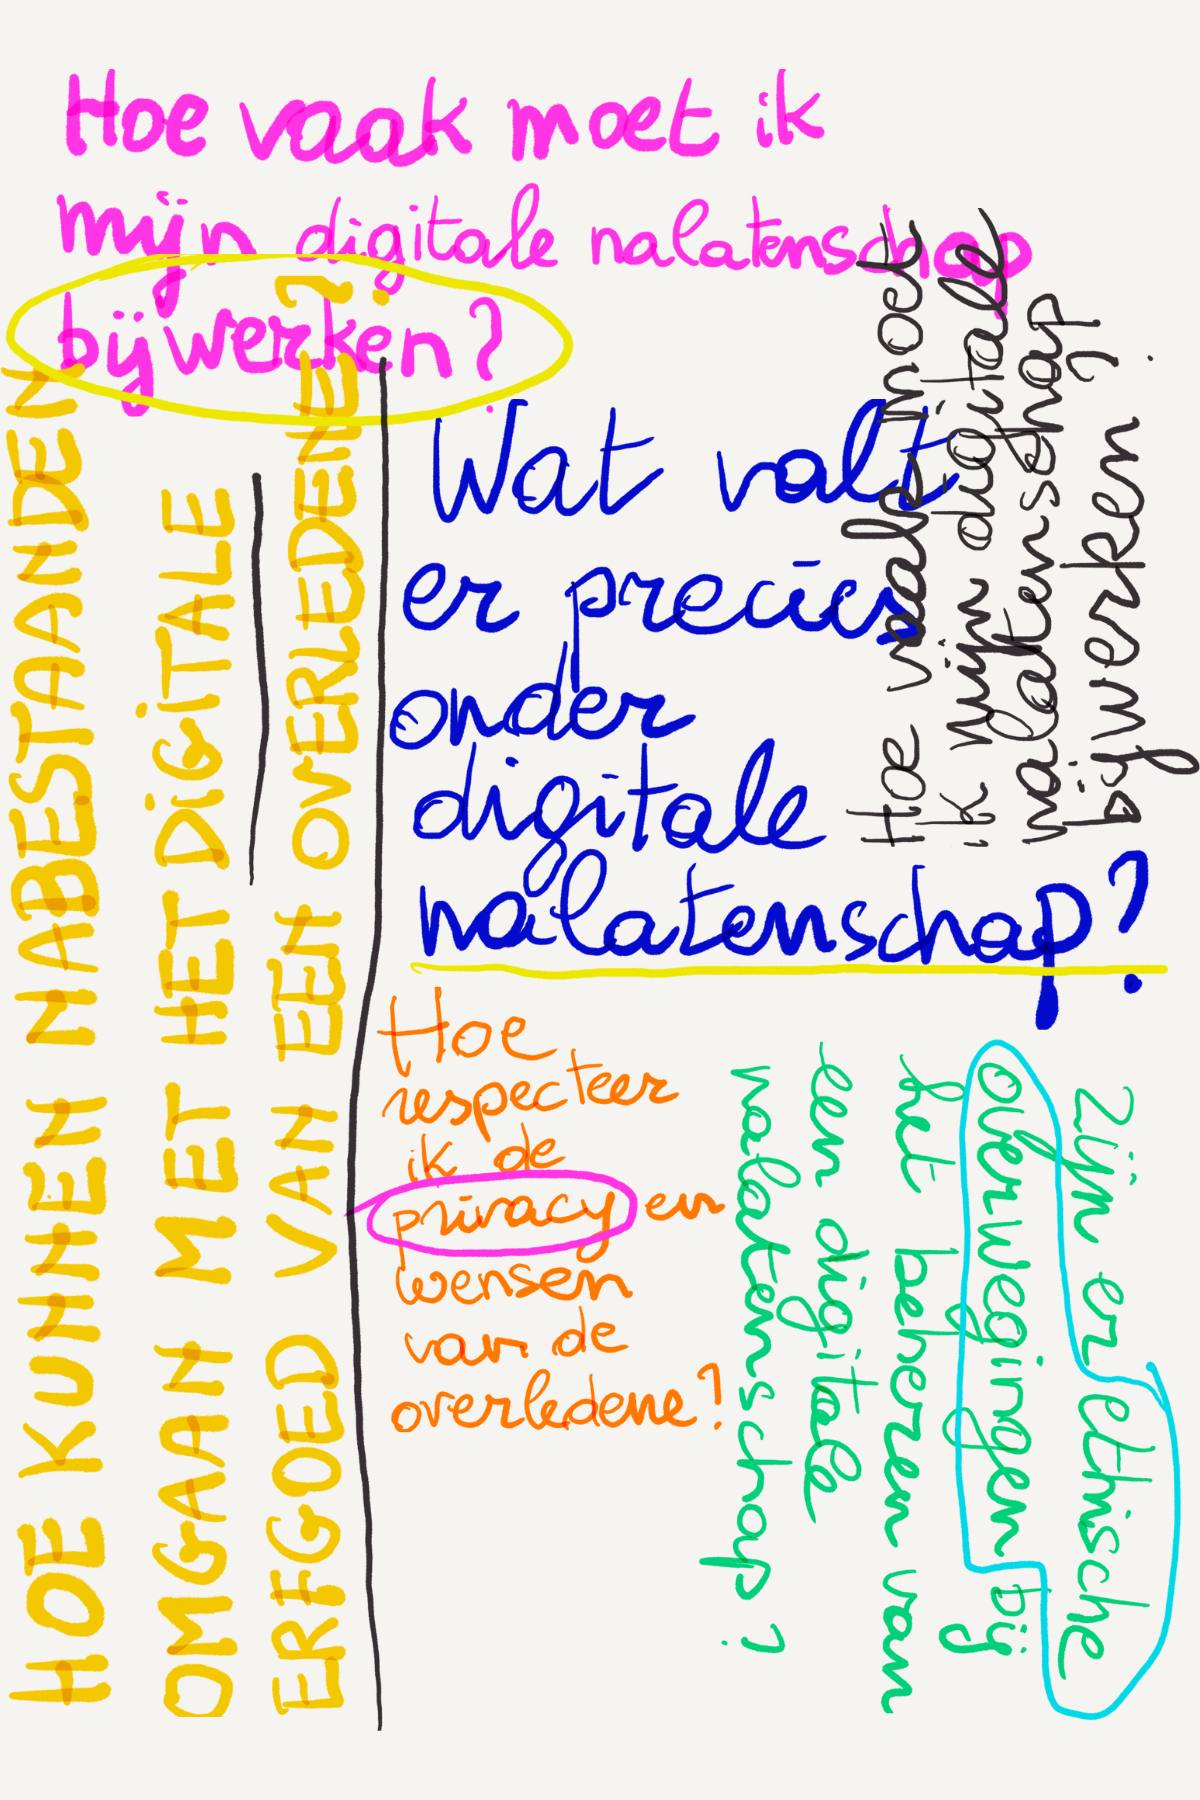 Hoe vaak moet ik
mijn digitale nalatenschap
bijwerken?
HOE KUNNEN NABESTAANDEN
OMGAAN MET HET DIGITALE
ERFGOED VAN EEN OVERLEDENE?
Wat valt
er precies
onder
digitale
nalatenschap?
Hoe vaak moet
ik mijn digitale
nalatenschap
bijwerken?
Hoe
respecteer
ik de
privacy en
wensen
van de
overledene?
Zijn er ethische
overwegingen bij
het beheren van
een digitale
nalatenschap?